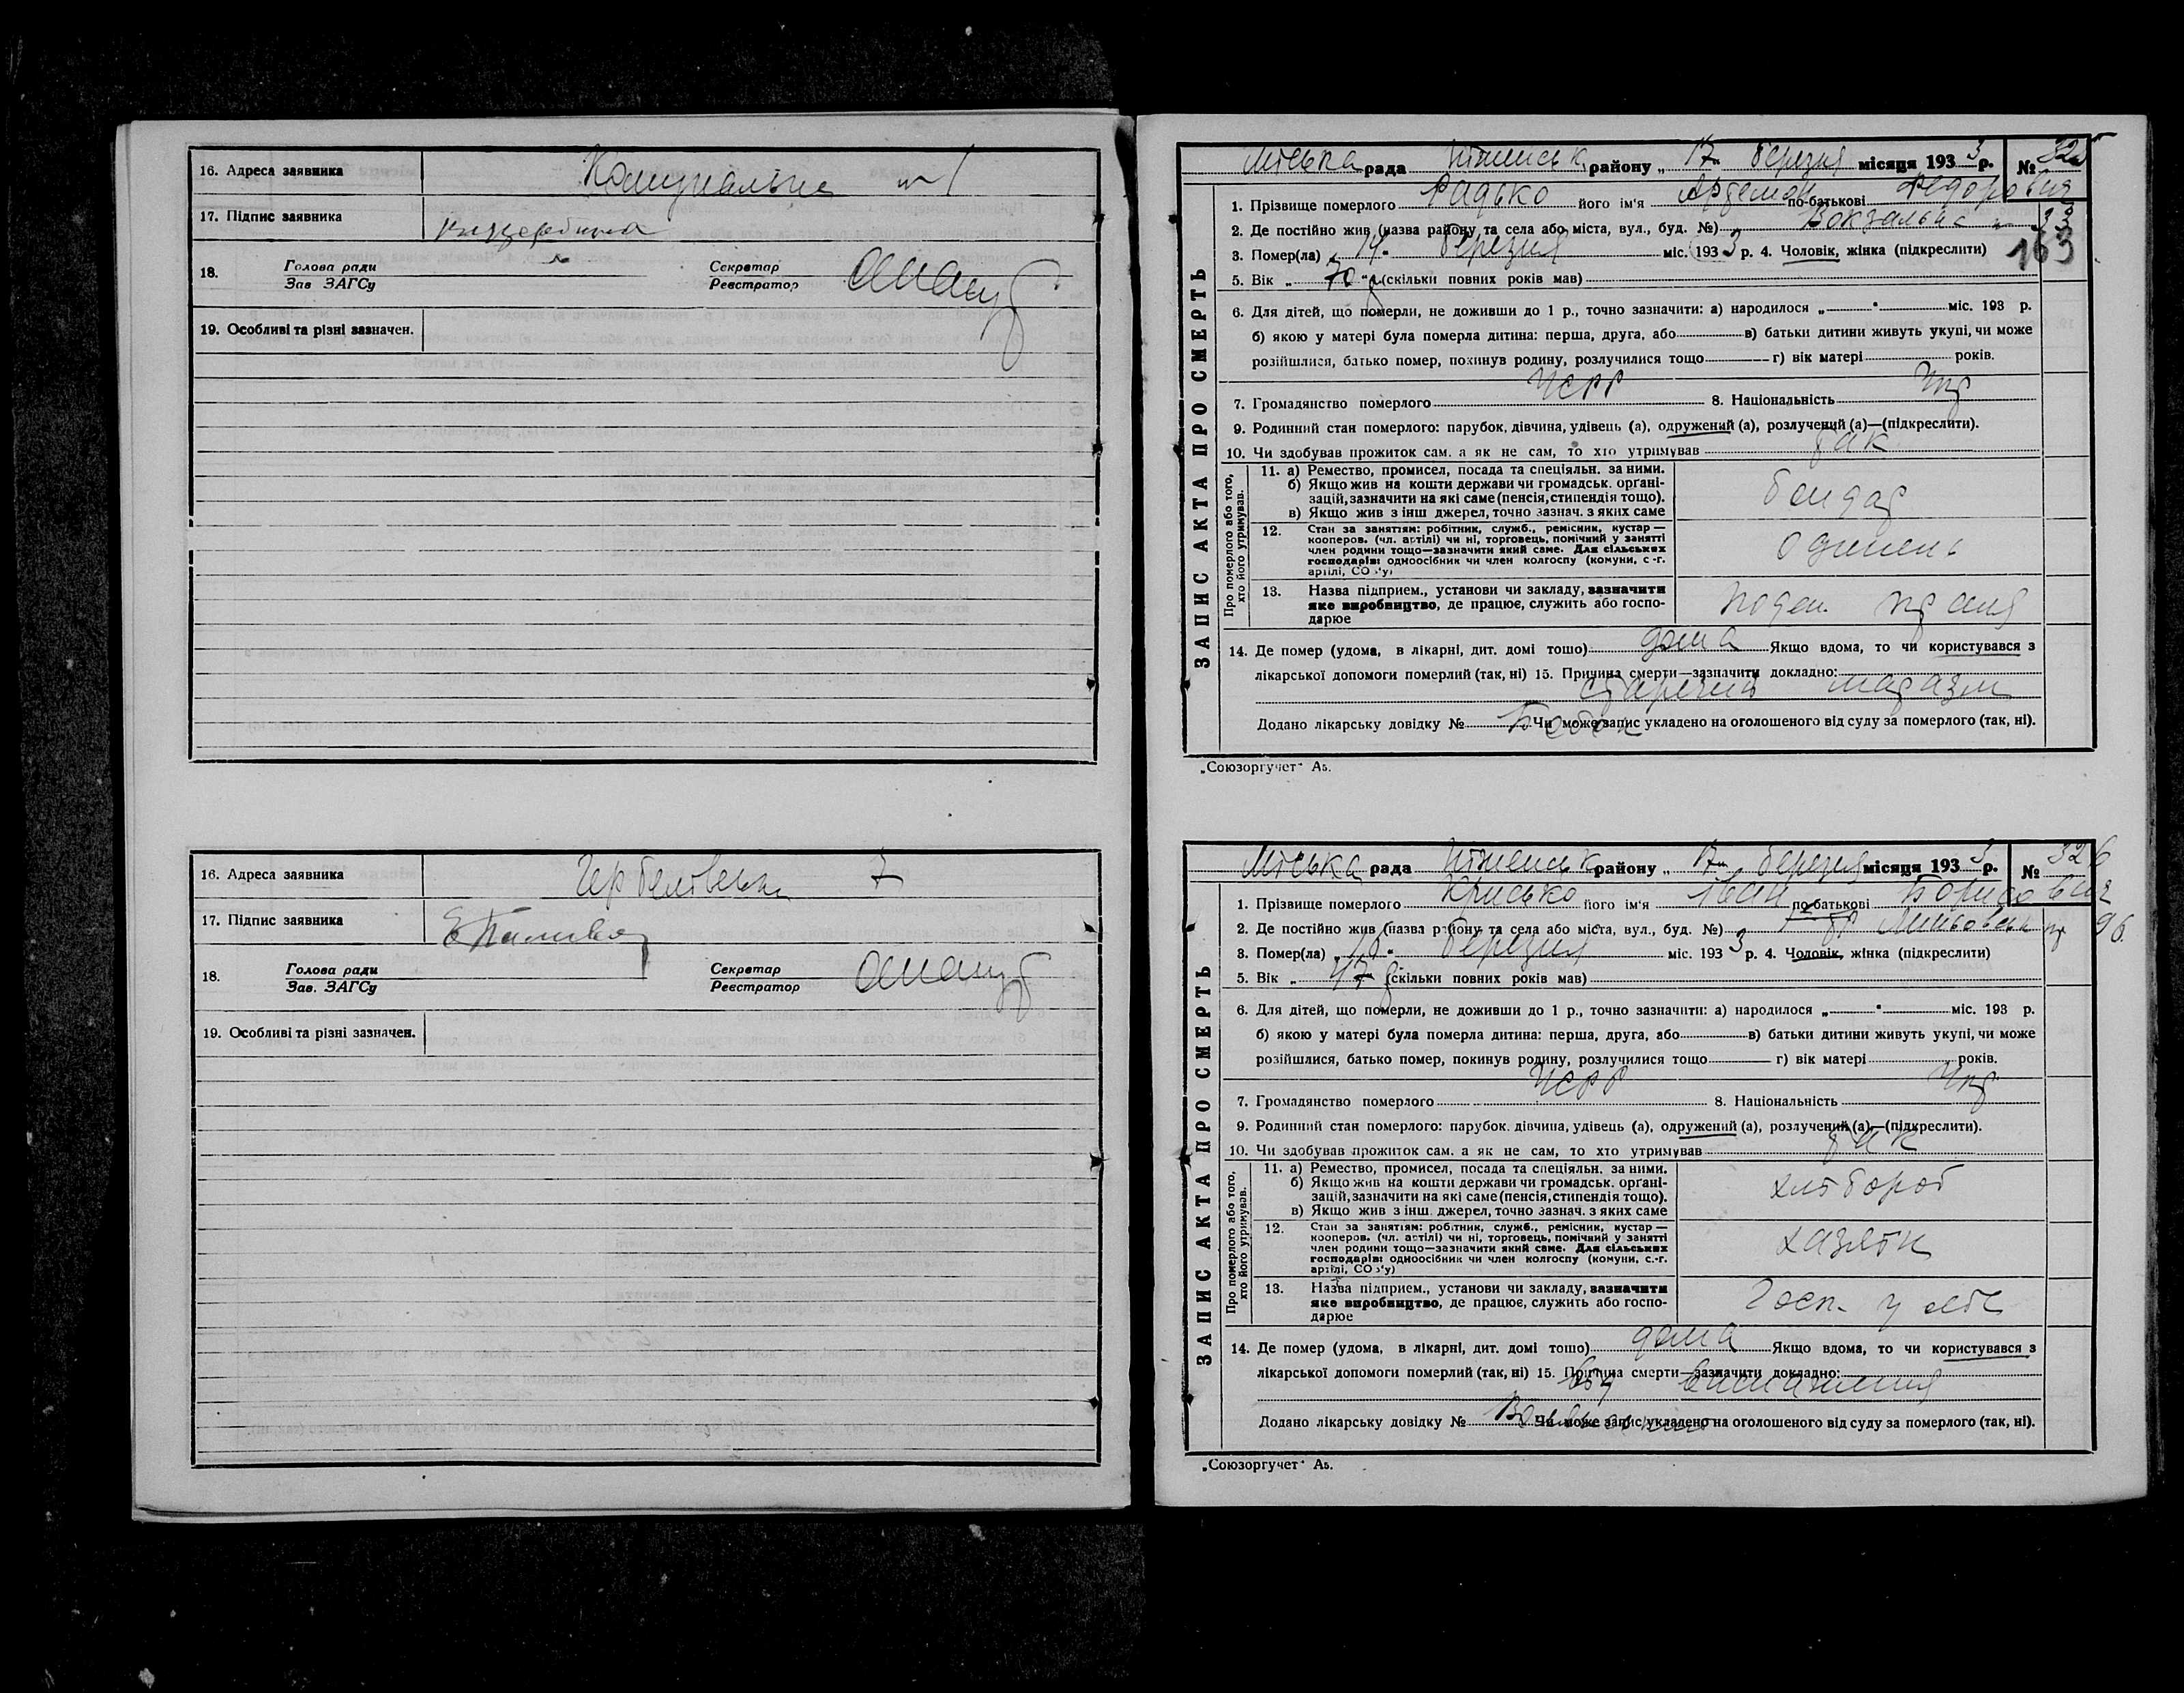 16. Адреса заявника Комунальна № 1
17. Підпис заявника
18. Голова ради Секретар
Зав ЗАГСу Реєстратор
19. Особливі та різні зазначен.
16. Адреса заявника 7
17. Підпис заявника
18. Голова ради Секретар
Зав. ЗАГСу Реєстратор
19. Особливі та різні зазначен.
ЗАПИС АКТА ПРО СМЕРТЬ
Міська рада Ніженськ району „17" березня місяця 1933 р. № 325
1. Прізвище померлого Радько його ім'я Артемон по-батькові Федорович
2. Де постійно жив (назва району та села або міста, вул., буд. №) Вокзальна № 33
163
3. Помер(ла) „14" березня міс. 1933 р. 4. Чоловік, жінка (підкреслити)
5. Вік „70" (скільки повних років мав)
6. Для дітей, що померли, не доживши до 1 р., точно зазначити: а) народилося „ " міс. 193 р.
б) якою у матері була померла дитина: перша, друга, або в) батьки дитини живуть укупі, чи може
розійшлися, батько помер, покинув родину, розлучилися тощо г) вік матері років.
7. Громадянство померлого УСРР 8. Національність Укр
9. Родинний стан померлого: парубок, дівчина, удівець (а), одружений (а), розлучений (а)—(підкреслити).
10. Чи здобував прожиток сам. а як не сам, то хто утримував так
Про померлого або того, хто його утримував.
11. а) Ремество, промисел, посада та спеціяльн. за ними.
б) Якщо жив на кошти держави чи громадськ. органі-
зацій, зазначити на які саме (пенсія, стипендія тощо).
в) Якщо жив з інш джерел, точно зазнач. з яких саме
бондар
12. Стан за заняттям: робітник, служб., ремісник, кустар —
кооперов. (чл. артілі) чи ні, торговець, помічний у занятті
член родини тощо—зазначити який саме. Для сільських
господарів: одноосібник чи член колгоспу (комуни, с.-г.
артілі, СОЗ'у)
одинень
13. Назва підприєм., установи чи закладу, зазначити
яке виробництво, де працює, служить або госпо-
дарює
поден. праця
14. Де помер (удома, в лікарні, дит. домі тошо) дома Якщо вдома, то чи користувався з
лікарської допомоги померлий (так, ні) 15. Причина смерти—зазначити докладно:
старечий маразм
Додано лікарську довідку № Чи може запис укладено на оголошеного від суду за померлого (так, ні).
„Союзоргучет" Аз.
ЗАПИС АКТА ПРО СМЕРТЬ
Міська рада Ніженськ району „17" березня місяця 1933 р. № 326
1. Прізвище померлого Крисько його ім'я Іван по батькові Борисович
2. Де постійно жив (назва району та села або міста, вул., буд. №) 96
3. Помер(ла) „16" березня міс. 1933 р. 4. Чоловік, жінка (підкреслити)
5. Вік „47 (скільки повних років мав)
6. Для дітей, що померли, не доживши до 1 р., точно зазначити: а) народилося „ " міс. 193 р.
б) якою у матері була померла дитина: перша, друга, або в) батьки дитини живуть укупі, чи може
розійшлися, батько помер, покинув родину, розлучилися тощо г) вік матері років.
7. Громадянство померлого УСРР 8. Національність Укр
9. Родинний стан померлого: парубок, дівчина, удівець (а), одружений (а), розлучений (а)—(підкреслити).
10. Чи здобував прожиток сам. а як не сам, то хто утримував так
Про померлого або того, хто його утримував.
11. а) Ремество, промисел, посада та спеціяльн. за ними.
б) Якщо жив на кошти держави чи громадськ. органі-
зацій, зазначити на які саме (пенсія, стипендія тощо).
в) Якщо жив з інш. джерел, точно зазнач. з яких саме
хлібороб
12. Стан за заняттям: робітник, служб., ремісник, кустар —
кооперов. (чл. артілі) чи ні, торговець, помічний у занятті
член родини тощо—зазначити який саме. Для сільських
господарів: одноосібник чи член колгоспу (комуни, с.-г.
артілі, СОЗ'у)
хазяїн
13. Назва підприєм., установи чи закладу, зазначити
яке виробництво, де працює, служить або госпо-
дарює
Госп. у
14. Де помер (удома, в лікарні, дит. домі тошо) дома Якщо вдома, то чи користувався з
лікарської допомоги померлий (так, ні) 15. Причина смерти—зазначити докладно:
від виснаження
Додано лікарську довідку № Чи може запис укладено на оголошеного від суду за померлого (так, ні).
„Союзоргучет" Аз.